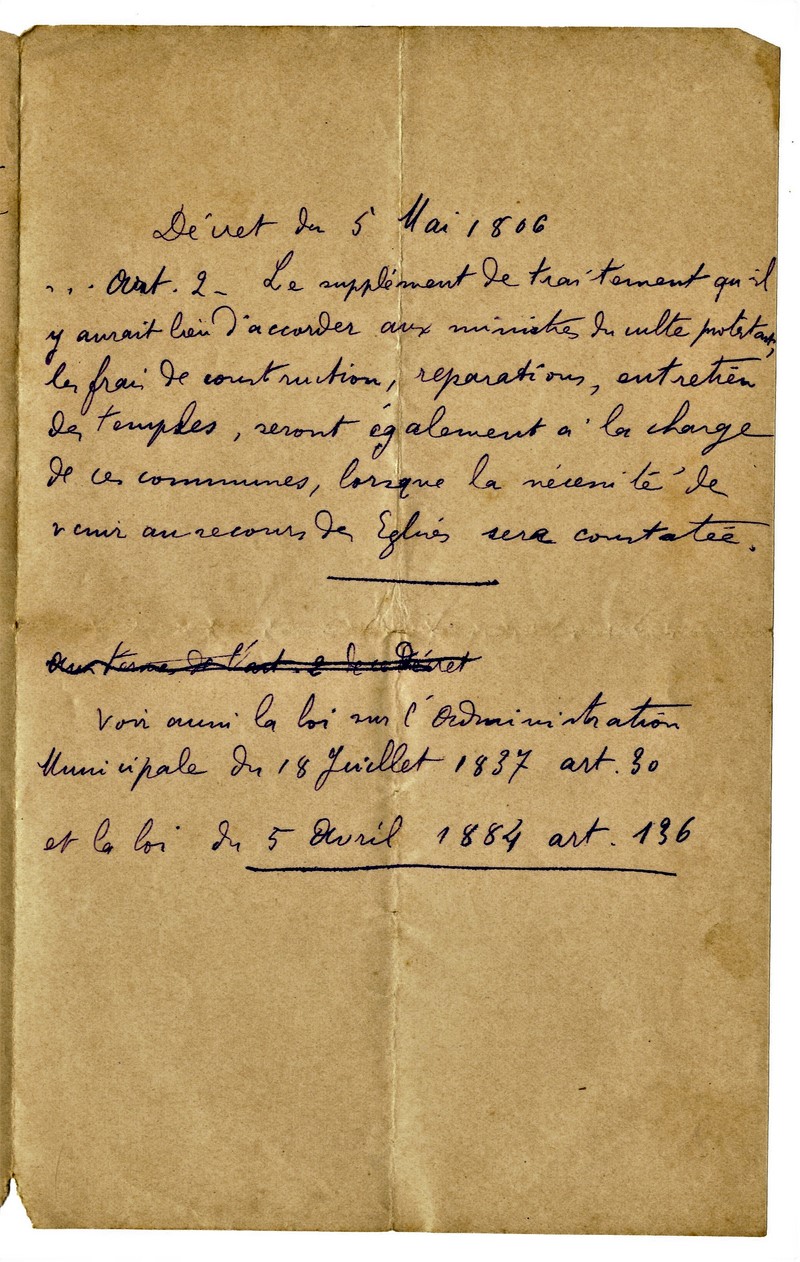 Décret du 5 Mai 1806
... Art. 2 - Le supplément de traitement qu'il
y aurait lieu d'accorder aux ministres du culte protestant,
les frais de construction, reparations, entretien
des temples, seront également à la charge
de ces communes, lorsque la nécessité de
venir au secours des Eglises sera constatée.
Aux termes de l'art. 2 de ce Décret
Voir aussi la loi sur l'Administration
Municipale du 18 Juillet 1837 art. 30
et la loi du 5 Avril 1884 art. 136